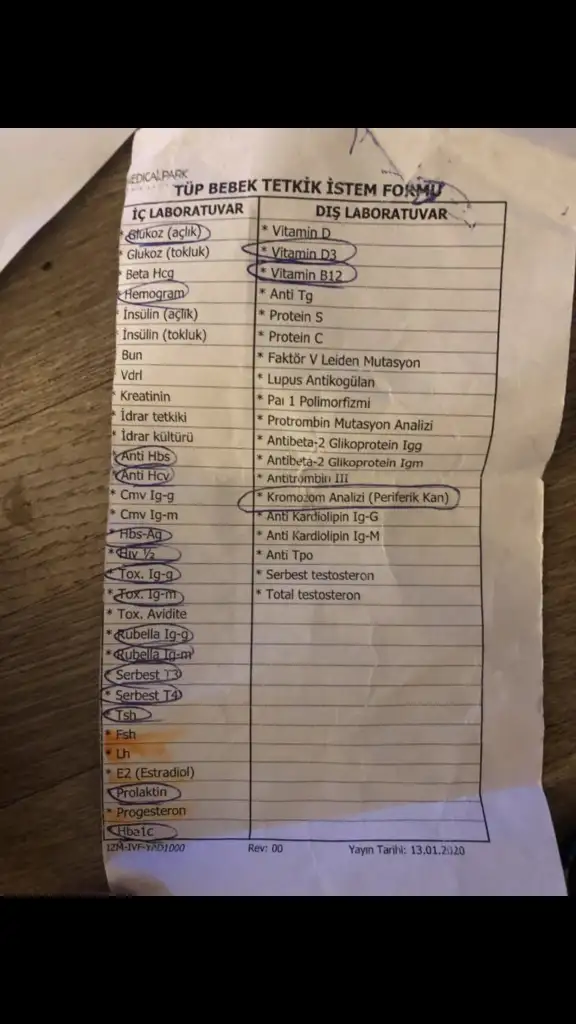 MEDICALPARK
TÜP BEBEK TETKİK İSTEM FORMU
İÇ LABORATUVAR
* Glukoz (açlık)
* Glukoz (tokluk)
* Beta Hcg
* Hemogram
* İnsülin (açlık)
* İnsülin (tokluk)
Bun
Vdrl
* Kreatinin
* İdrar tetkiki
* İdrar kültürü
* Anti Hbs
* Anti Hcv
* Cmv Ig-g
* Cmv Ig-m
* Hbs-Ag
* Hiv ½
* Tox. Ig-g
* Tox. Ig-m
* Tox. Avidite
* Rubella Ig-g
* Rubella Ig-m
* Serbest T3
* Serbest T4
* Tsh
* Fsh
* Lh
* E2 (Estradiol)
* Prolaktin
* Progesteron
* Hba1c
DIŞ LABORATUVAR
* Vitamin D
* Vitamin D3
* Vitamin B12
* Anti Tg
* Protein S
* Protein C
* Faktör V Leiden Mutasyon
* Lupus Antikogülan
* Pai 1 Polimorfizmi
* Protrombin Mutasyon Analizi
* Antibeta-2 Glikoprotein Igg
* Antibeta-2 Glikoprotein Igm
* Antitrombin III
* Kromozom Analizi (Periferik Kan)
* Anti Kardiolipin Ig-G
* Anti Kardiolipin Ig-M
* Anti Tpo
* Serbest testosteron
* Total testosteron
IZM-IVF-YAD1000 Rev: 00 Yayın Tarihi: 13.01.2020